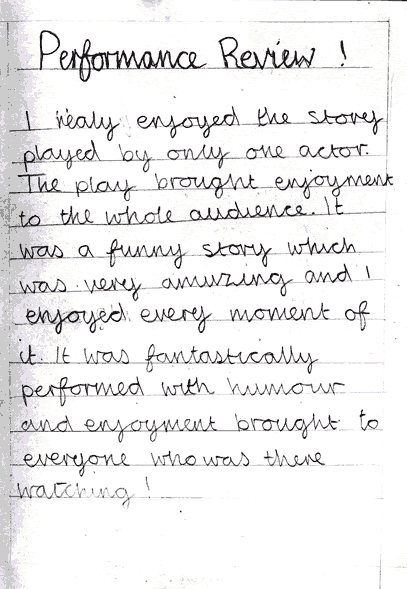 Performance Review !
I realy enjoyed the story
played by only one actor.
The play brought enjoyment
to the whole audience. It
was a funny story which
was very amuzing and I
enjoyed every moment of
it. It was fantastically
performed with humour
and enjoyment brought to
everyone who was there
watching !